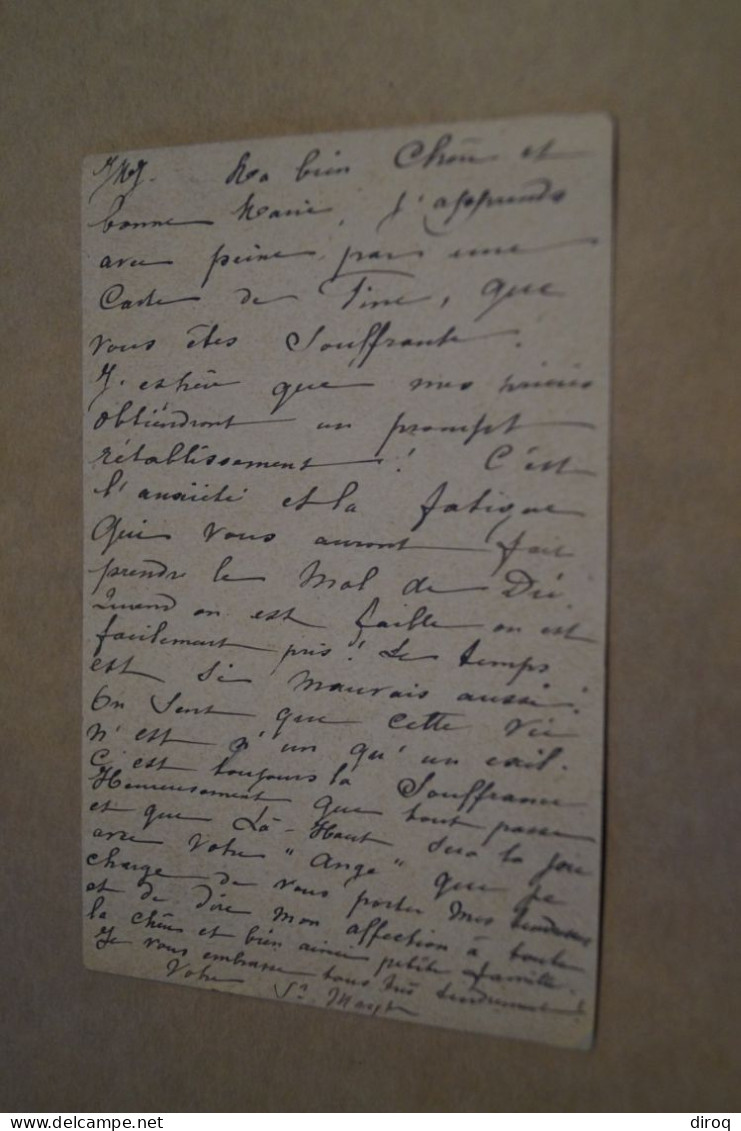 Ma bien Chère et
bonne Marie, J'apprends
avec peine, par une
Carte de Fine, que
vous êtes Souffrante.
J'espère que mes prières
obtiendront un prompt
rétablissement! C'est
l'anxiété et la fatigue
Qui vous auront fait
prendre le Mal de
Quand on est faible on est
facilement pris! Le temps
est si mauvais aussi!
On sent que cette vie
n'est qu'un exil.
C'est toujours la Souffrance
Heureusement que tout passe
et que Là-Haut sera la joie
avec Votre "Ange" que je
charge de vous porter Mes tendresses
et de dire mon affection à toute
la chère et bien aimée petite famille.
Je vous embrasse tous très tendrement!
Votre Sr
delcampe.net
diroq